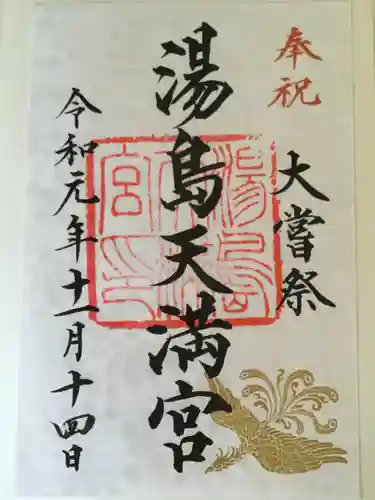 奉祝
大嘗祭
湯島天満宮
令和元年十一月十四日